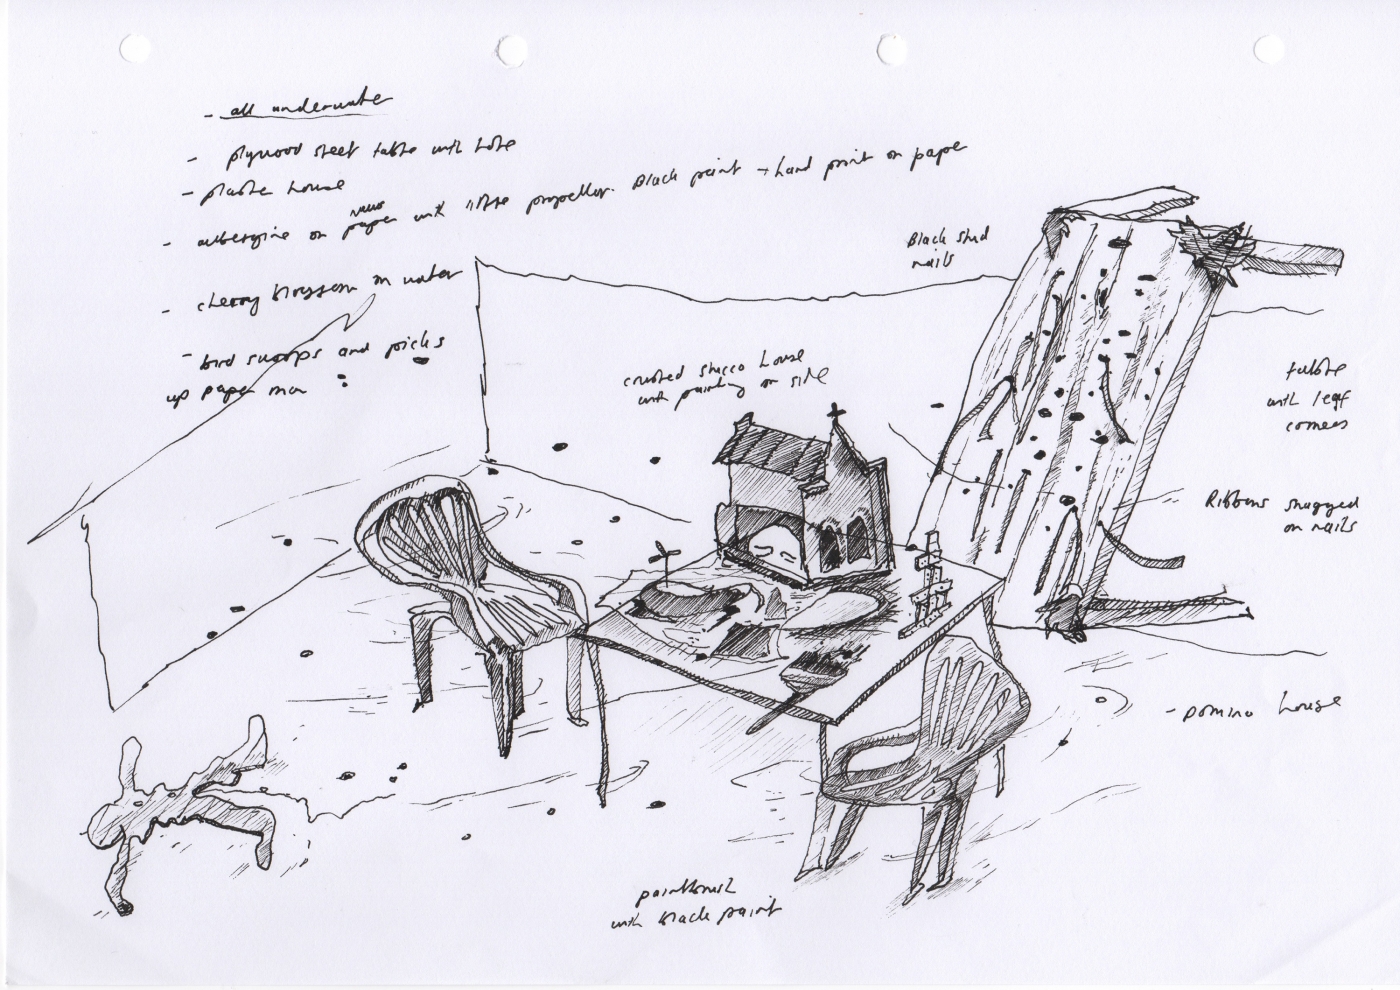 - all underwater
- plywood sheet table with hole
- plastic house
- aubergine on news paper with little propellor. Black paint → hand print on paper
- cherry blossom in water
- bird swoops and picks
up paper man
Black stud
nails
crusted stucco house
with painting on side
table
with leaf
corners
Ribbons snagged
on nails
- Domino house
paintbrush
with black paint